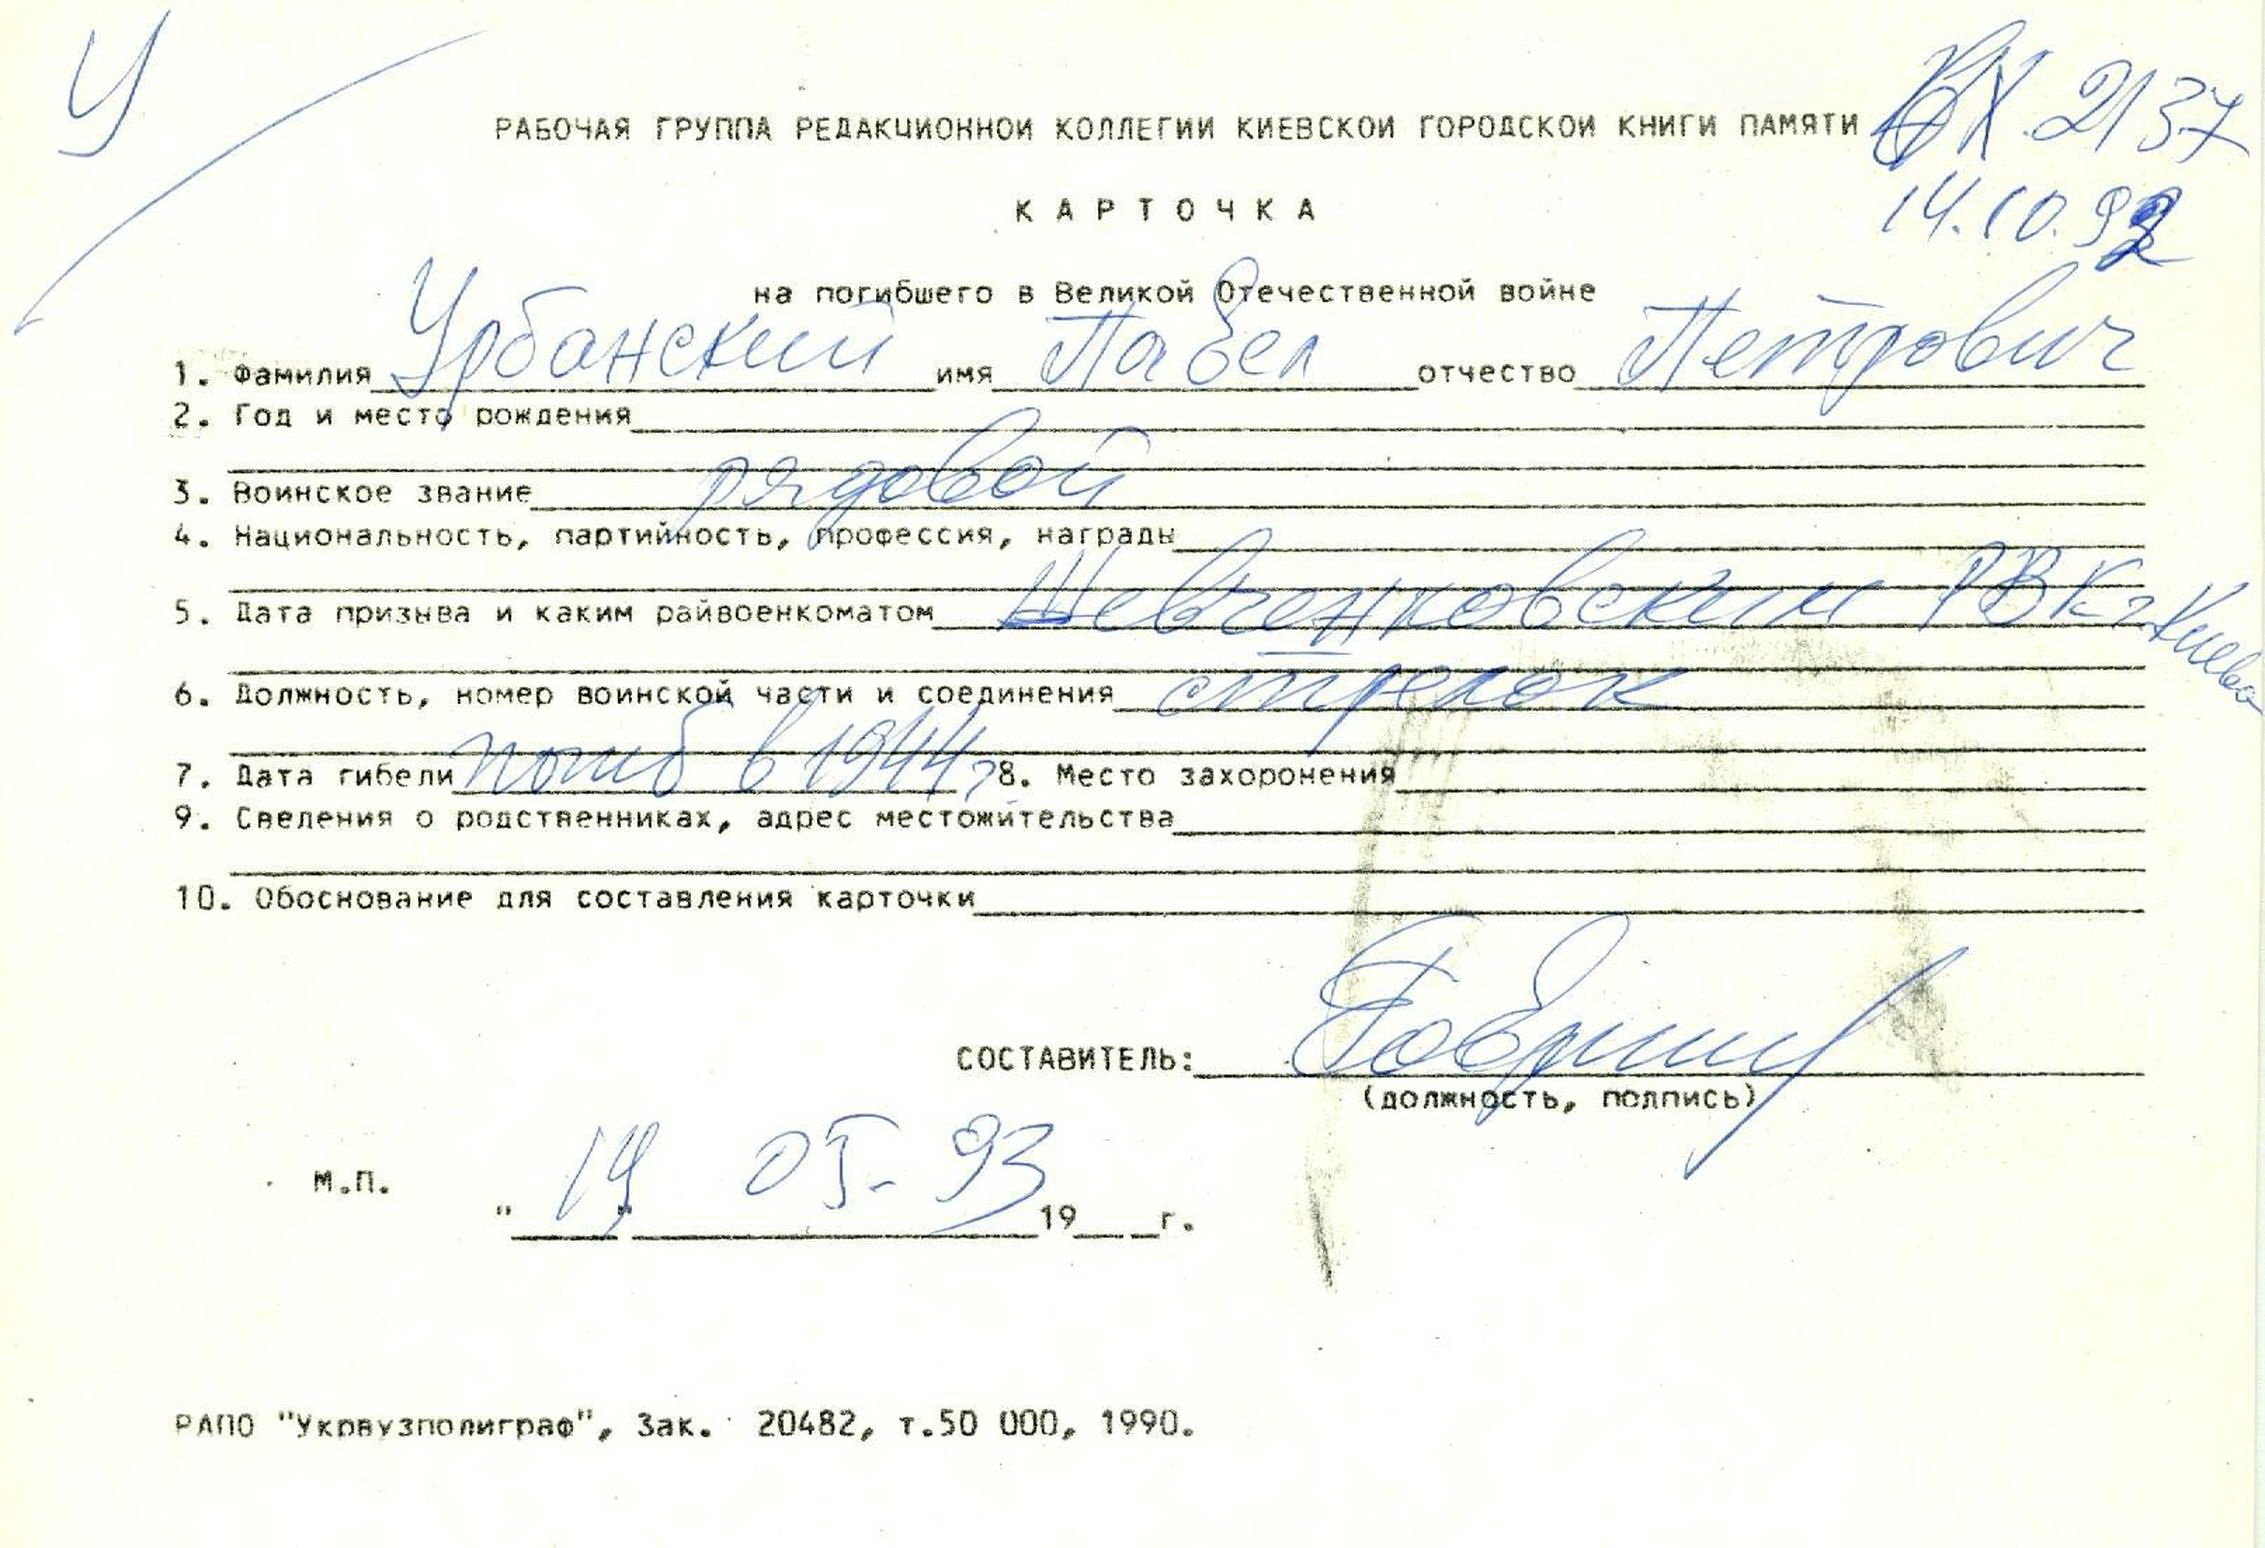 У
РАБОЧАЯ ГРУППА РЕДАКЦИОННОЙ КОЛЛЕГИИ КИЕВСКОЙ ГОРОДСКОЙ КНИГИ ПАМЯТИ
ВХ. 2137
14.10.92
КАРТОЧКА
на погибшего в Великой Отечественной войне
1. Фамилия Урбанский имя Павел отчество Петрович
2. Год и место рождения
3. Воинское звание рядовой
4. Национальность, партийность, профессия, награды
5. Дата призыва и каким райвоенкоматом Шевченковским РВК г. Киева
6. Должность, номер воинской части и соединения стрелок
7. Дата гибели погиб в 1944 г 8. Место захоронения
9. Сведения о родственниках, адрес местожительства
10. Обоснование для составления карточки
СОСТАВИТЕЛЬ:
(должность, подпись)
М.П.
"19" 05. 93 19 г.
РАПО "Укрвузполиграф", Зак. 20482, т.50 000, 1990.